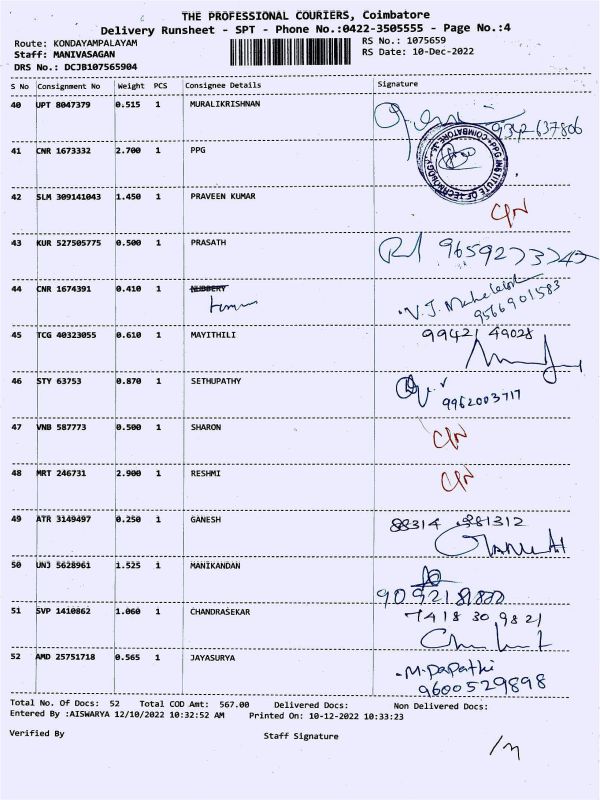 THE PROFESSIONAL COURIERS, Coimbatore
Delivery Runsheet - SPT - Phone No.:0422-3505555 - Page No.:4
Route: KONDAYAMPALAYAM RS No.: 1075659
Staff: MANIVASAGAN RS Date: 10-Dec-2022
DRS No.: DCJB107565904
S No Consignment No Weight PCS Consignee Details Signature
40 UPT 8047379 0.515 1 MURALIKRISHNAN
9342637806
41 CNR 1673332 2.700 1 PPG
PPG INSTITUTE OF TECHNOLOGY COIMBATORE
42 SLM 309141043 1.450 1 PRAVEEN KUMAR
C/N
43 KUR 527505775 0.500 1 PRASATH
44 CNR 1674391 0.410 1 NUBBERY
9566901583
45 TCG 40323055 0.610 1 MAYITHILI 99421 49028
46 STY 63753 0.870 1 SETHUPATHY
9962003717
47 VNB 587773 0.500 1 SHARON C/N
48 MRT 246731 2.900 1 RESHMI C/N
49 ATR 3149497 0.250 1 GANESH 88314 981312
50 UNJ 5628961 1.525 1 MANIKANDAN
51 SVP 1410862 1.060 1 CHANDRASEKAR 7418 30 9821
52 AMD 25751718 0.565 1 JAYASURYA M. Papathi
9600529898
Total No. Of Docs: 52 Total COD Amt: 567.00 Delivered Docs: Non Delivered Docs:
Entered By :AISWARYA 12/10/2022 10:32:52 AM Printed On: 10-12-2022 10:33:23
Verified By Staff Signature